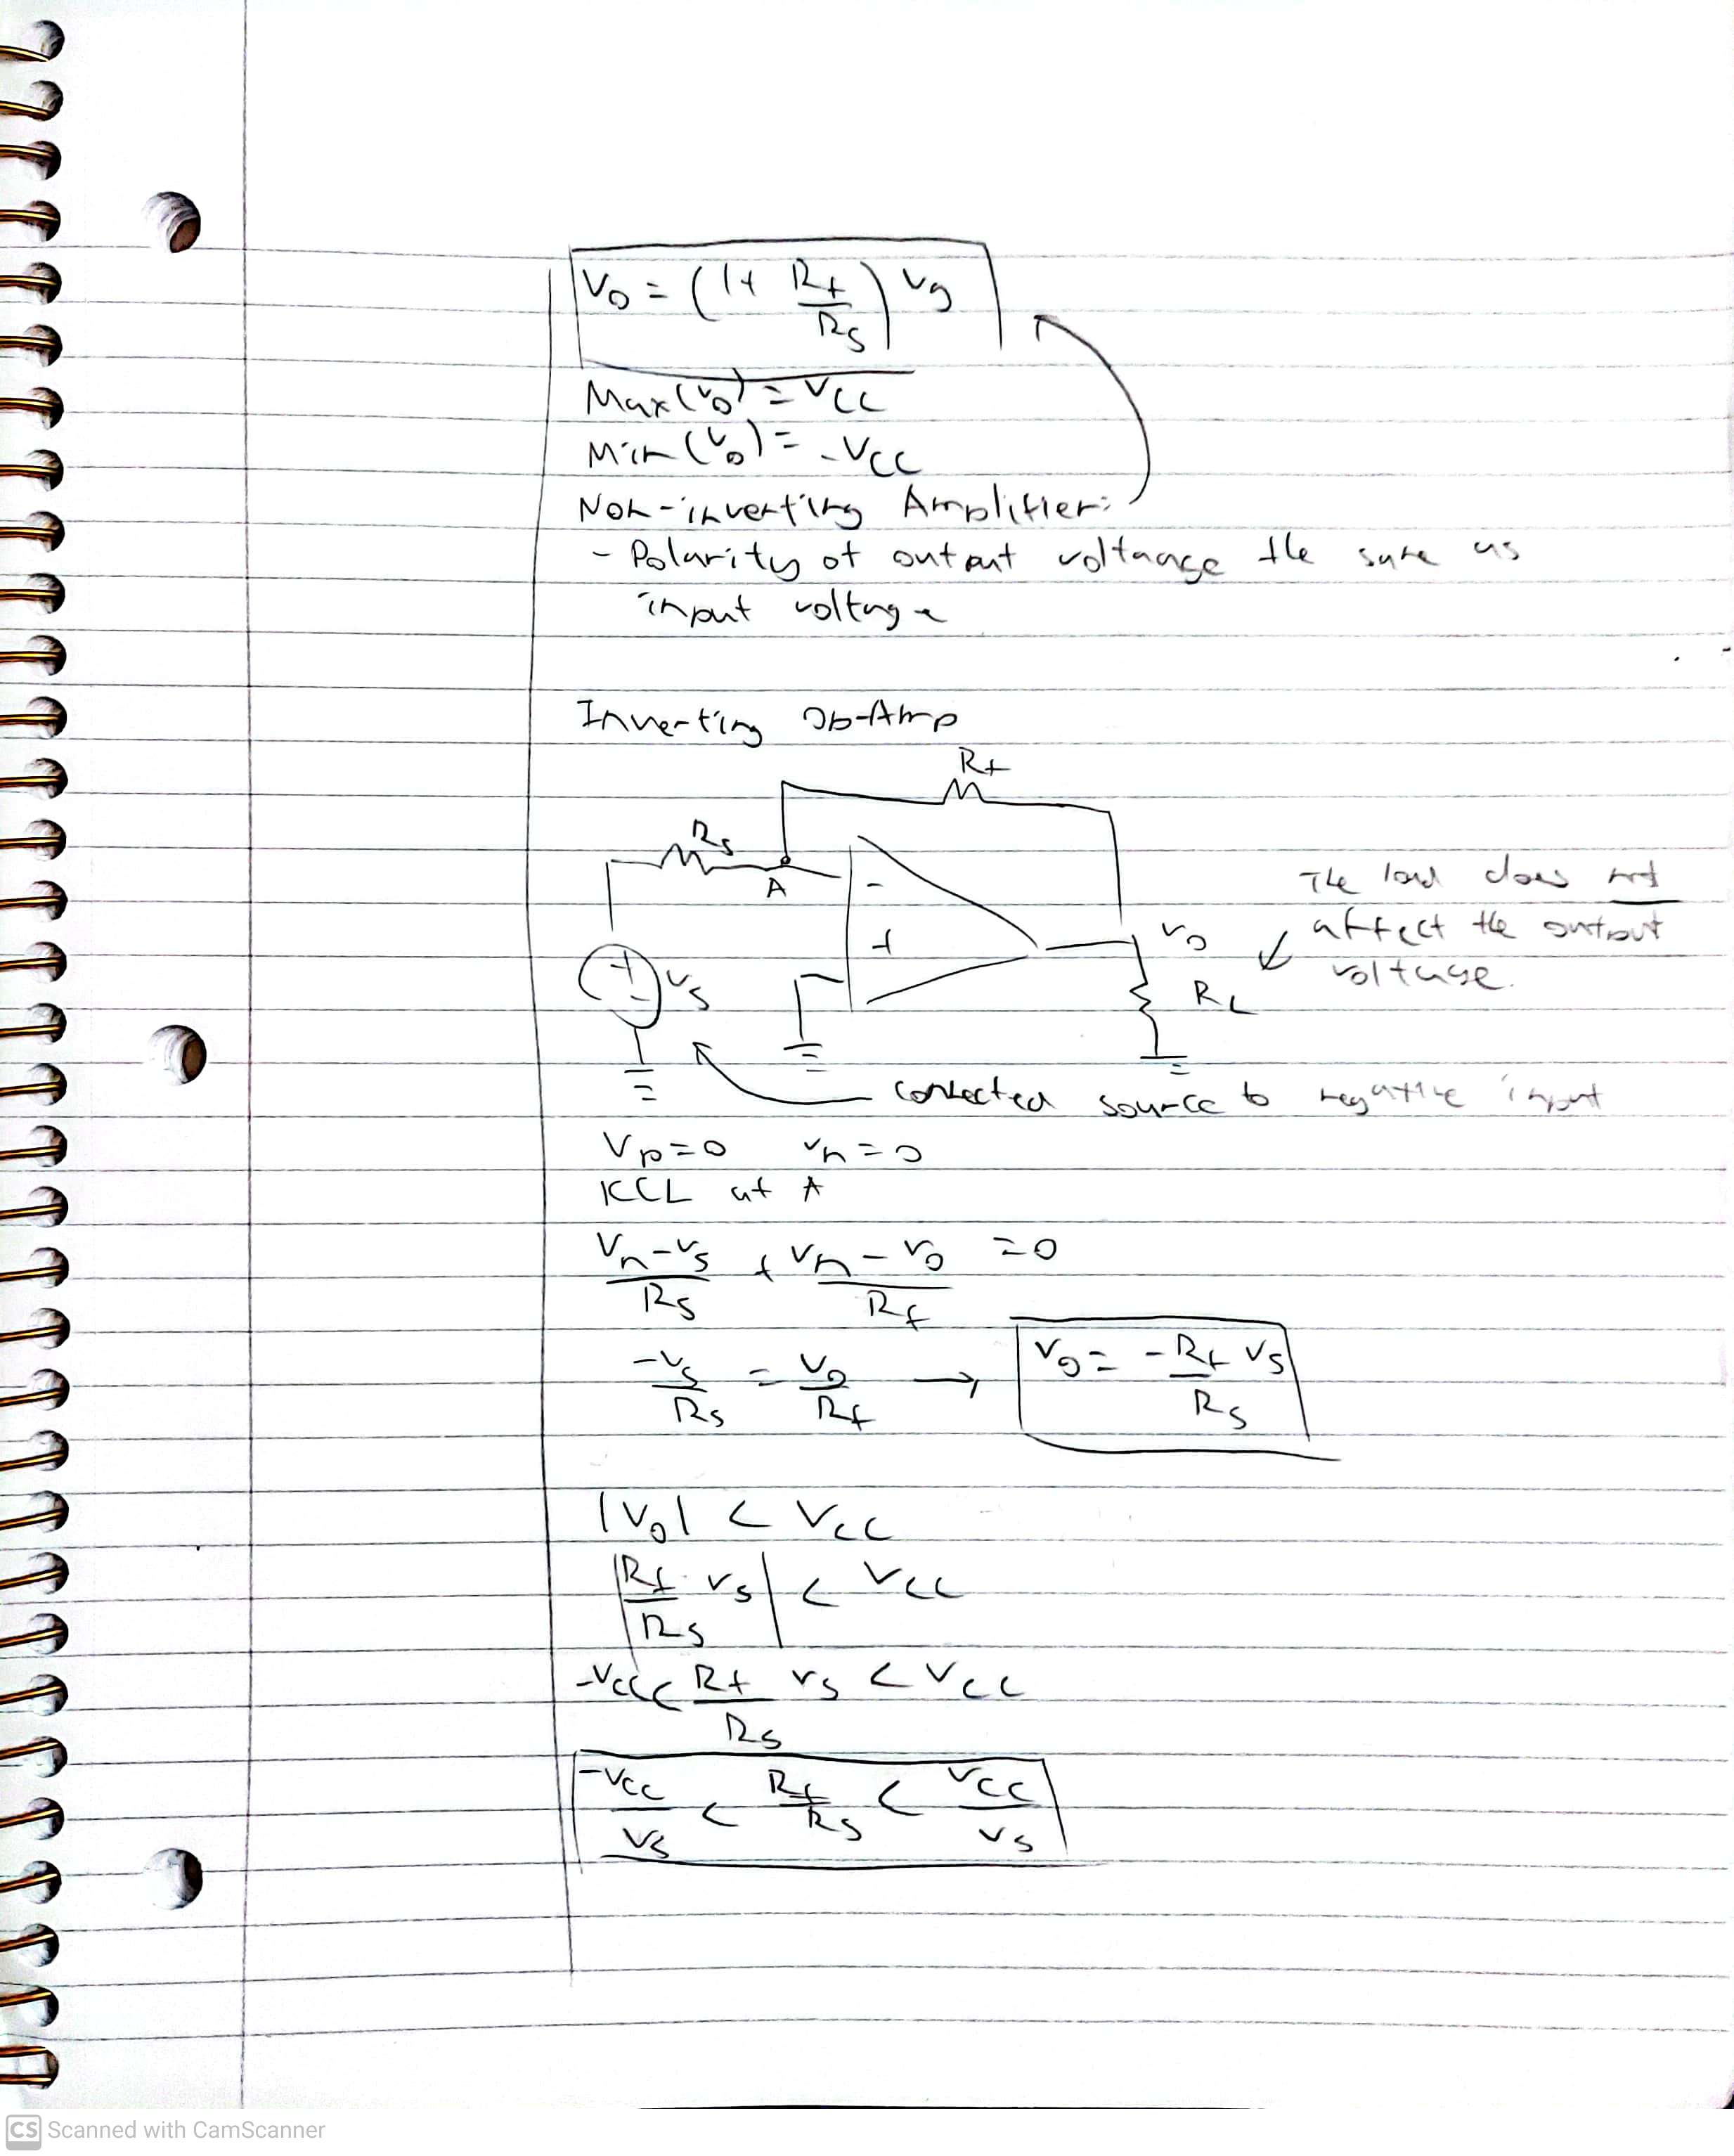 V₀ = (1+ Rf/Rs) vg
Max(v₀) = Vcc
Min(v₀) = -Vcc
Non-inverting Amplifier:
- Polarity of output voltaage the same as
input voltage
Inverting Op-Amp
Rf
Rs
A
-
+
+
-
vs
v₀
RL
The load does not
affect the output
voltage.
connected source to negative input
Vp=0 vn=0
KCL at A
(Vn-vs)/Rs + (Vn-v₀)/Rf =0
-vs/Rs = v₀/Rf → v₀= -Rf/Rs vs
|V₀| < Vcc
|Rf/Rs · vs| < Vcc
-Vcc< Rf/Rs vs < Vcc
-Vcc/vs < Rf/Rs < Vcc/vs
CS Scanned with CamScanner